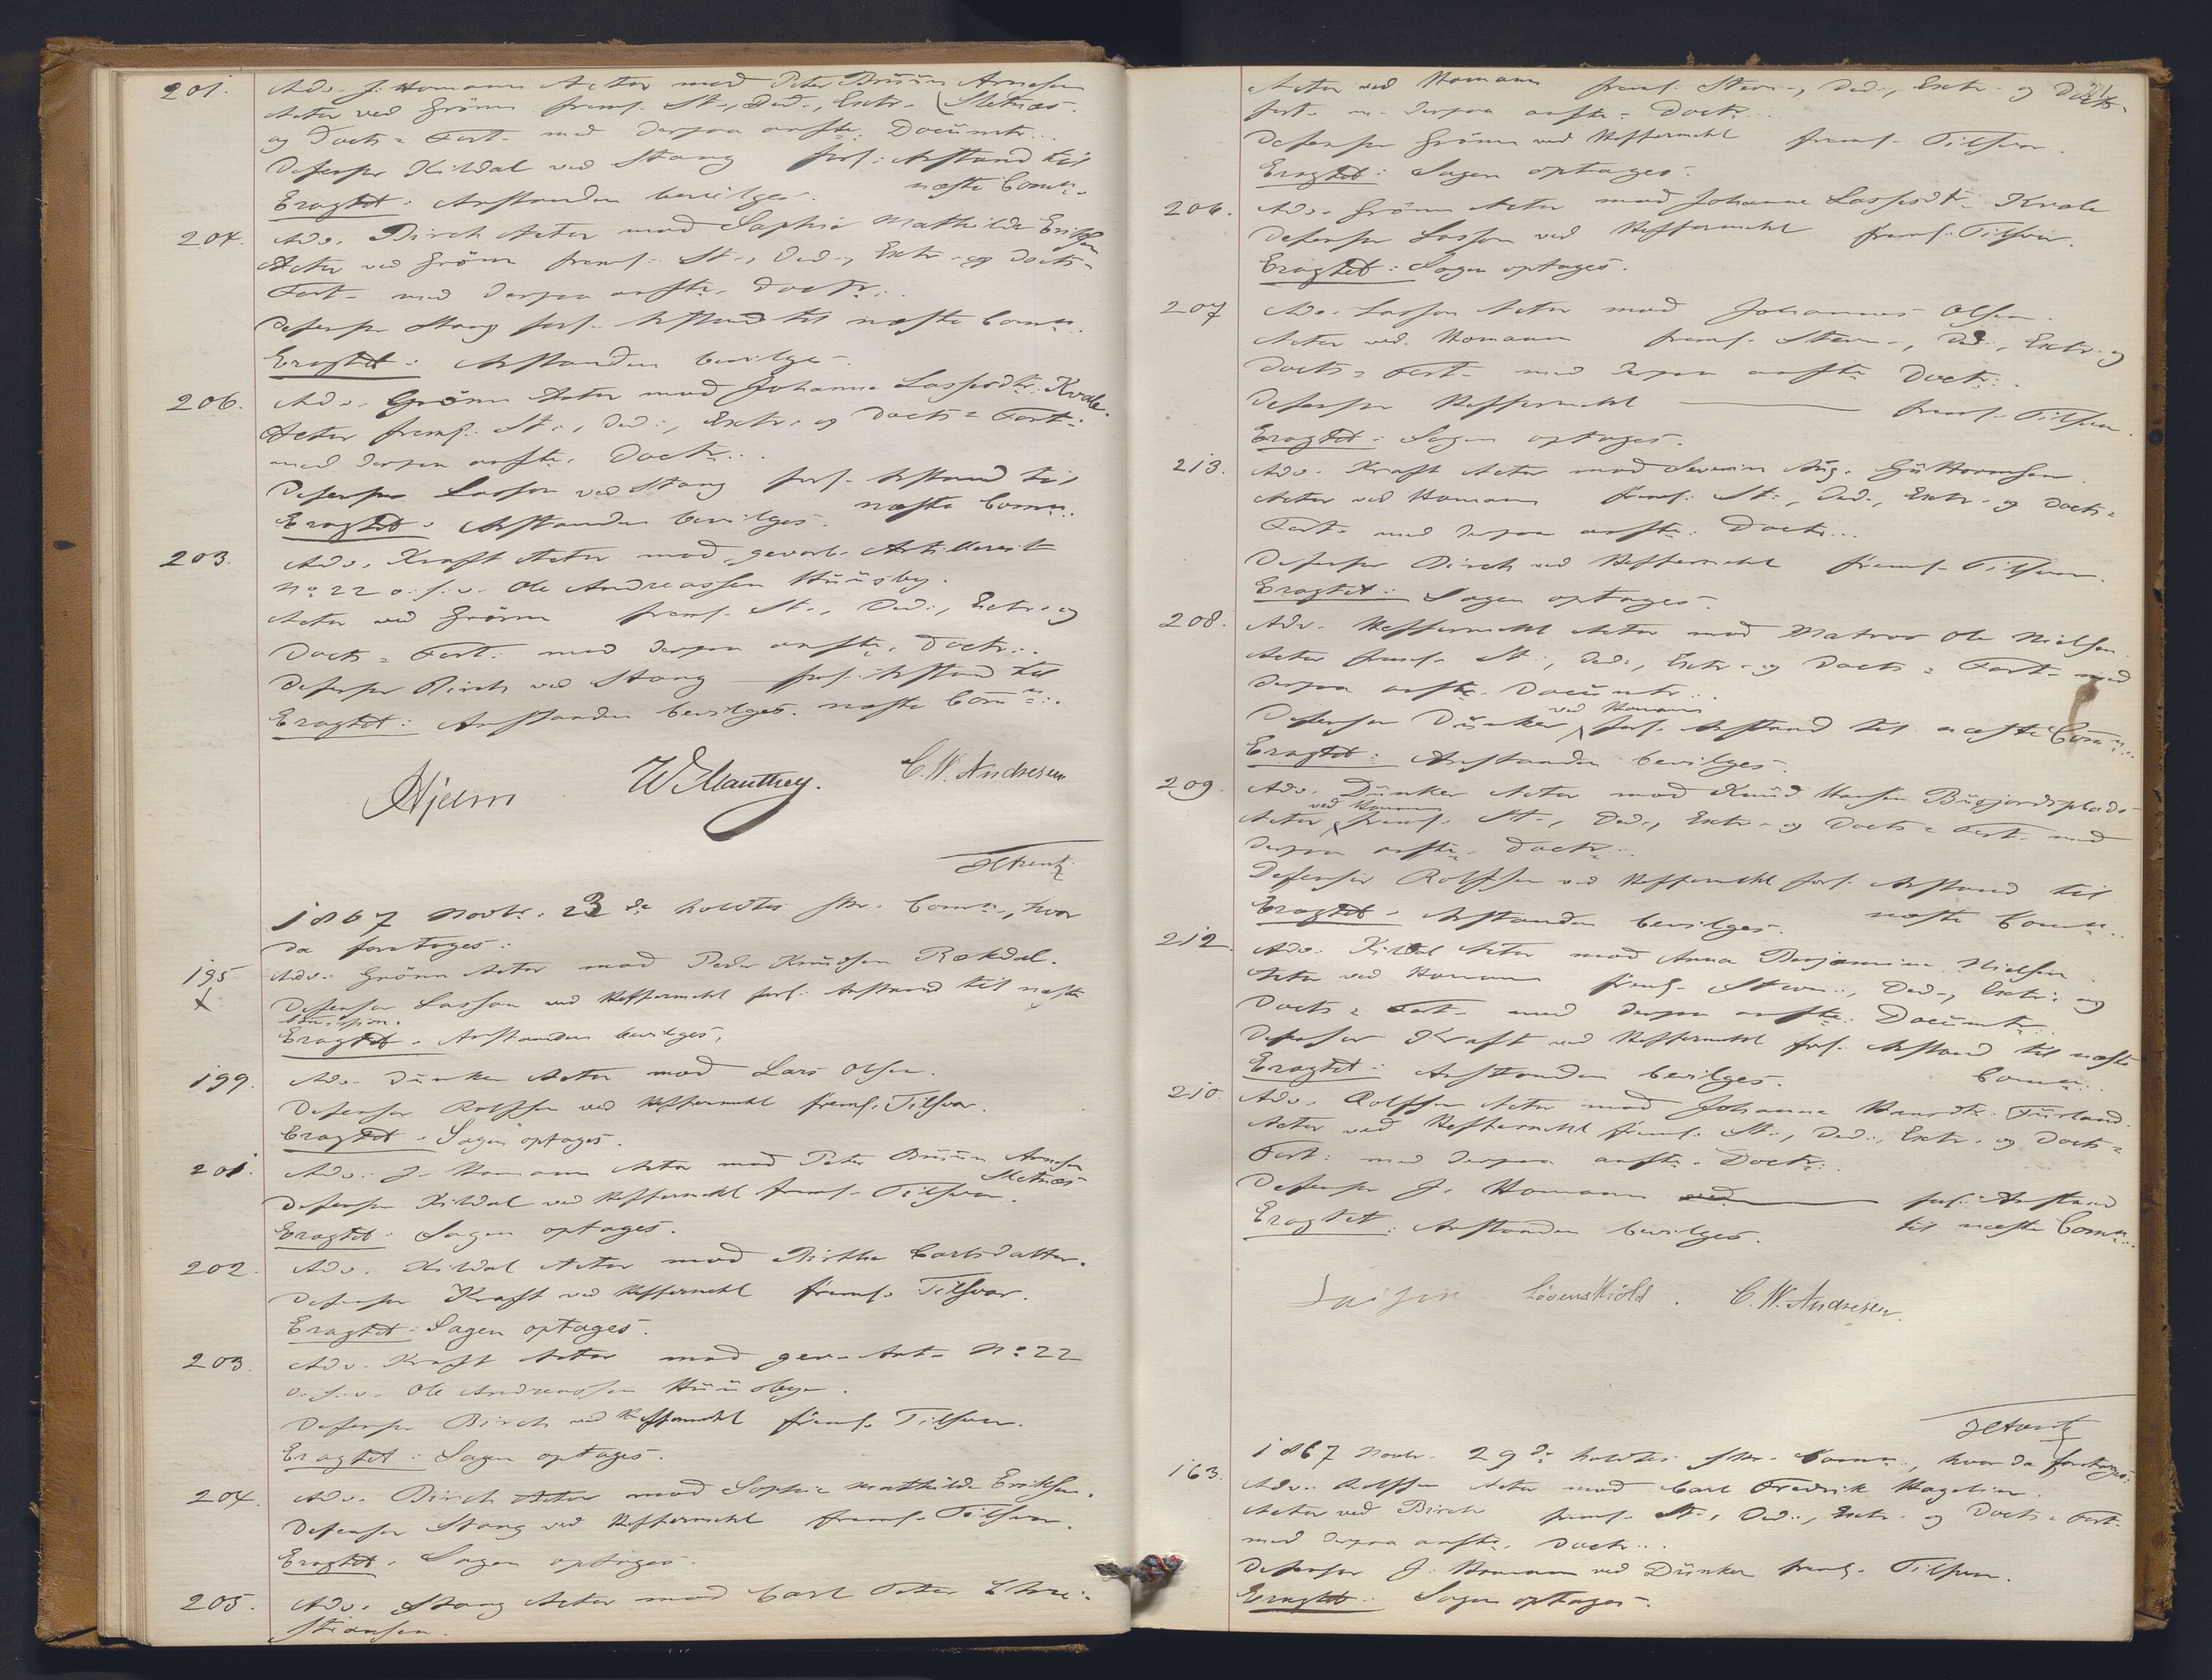 201. Adv. J. Homann Actor mod Peter Bruun Arnesen
Actor ved Grönn fremf. St., Ded., Extr. Sletnæs.
og Docts = Fort. med derpaa anfte. Documtr...
Defensor Kildal ved Stang forl. Anstand til
Eragtet: Anstanden bevilges. næste Comm.
204. Adv. Birch Actor mod Sophie Mathilde Eriksen
Actor ved Grönn fremf. St., Ded., Extr. og Docts =
Fort. med derpaa anfte. Doctr..
Defensor Stang forl. Anstand til næste Comm.
Eragtet: Anstanden bevilges.
206. Adv. Grönn Actor mod Johanne Lassesdtr. Kvale.
Actor fremf. St., Ded., Extr. og Docts = Fort.
med derpaa anfte. Doctr...
Defensor Lasson ved Stang forl. Anstand til
Eragtet: Anstanden bevilges. næste Comm.
203. Adv. Kraft Actor mod gevorb. Artillerist
No 22 o.s.v. Ole Andreassen Huusby.
Actor ved Grönn fremf. St., Ded., Extr. og
Docts = Fort. med derpaa anfte. Doctr...
Defensor Birch ved Stang forl. Anstand til
Eragtet: Anstanden bevilges. næste Comm..
Hjelm WManthey. C. W. Andresen
1867 Novbr. 23de holdtes Comm., hvor
da foretoges:
195 Adv. Grönn Actor mod Peder Knudsen Rokdal.
X Defensor Lasson ved Heffermehl forl. Anstand til næste
Comission.
Eragtet. Anstanden bevilges.
199. Adv. Dunker Actor mod Lars Olsen.
Defensor Rolffsen ved Heffermehl fremf. Tilsvar.
Eragtet. Sagen optages.
201. Adv. J. Homann Actor mod Peter Bruun Arnesen
Sletnæs
Defensor Kildal ved Heffermehl fremf. Tilsvar.
Eragtet: Sagen optages.
202. Adv. Kildal Actor mod Birthe Carlsdatter.
Defensor Kraft ved Heffermehl fremf. Tilsvar.
Eragtet: Sagen optages.
203. Adv. Kraft Actor mod gev. Art. No 22
o.s.v. Ole Andreassen Huusbye.
Defensor Birch ved Heffermehl fremf. Tilsvar.
Eragtet: Sagen optages.
204. Adv. Birch Actor mod Sophie Mathilde Eriksen.
Defensor Stang ved Heffermehl fremf. Tilsvar.
Eragtet. Sagen optages.
205. Adv. Stang Actor mod Carl Peter Chri=
stiansen.
Actor ved Homann fremf. Stevn., Ded., Extr. og Docts =
Fort. m. derpaa anfte. Doctr...
Defensor Grönn ved Heffermehl fremf. Tilsvar.
Eragtet: Sagen optages.
206. Adv. Grönn Actor mod Johanne Lassesdtr. Kvale
Defensor Lasson ved Heffermehl fremf. Tilsvar.
Eragtet: Sagen optages.
207 Adv. Lasson Actor mod Johannes Olsen.
Actor ved Homann fremf. Stevn., Ded., Extr. og
Docts = Fort. med derpaa anfte Doctr..
Defensor Heffermehl fremf. Tilsvar.
Eragtet: Sagen optages.
213. Adv. Kraft Actor mod Severin Aug. Guttormsen.
Actor ved Homann fremf. St., Ded., Extr. og Docts =
Fort. med derpaa anfte. Doctr...
Defensor Birch ved Heffermehl fremf. Tilsvar.
Eragtet: Sagen optages.
208. Adv. Heffermehl Actor mod Matros Ole Nielsen.
Actor fremf. St., Ded., Extr. og Docts = Fort. med
derpaa anfte. Documtr...
ved Homann
Defensor Dunker forl. Anstand til næste Comm..
Eragtet: Anstanden bevilges.
209. Adv. Dunker Actor mod Knud Hansen Busjordsplads
ved Homann
Actor fremf. St., Ded., Extr. og Docts = Fort. med
derpaa anfte. Doctr..
Defensor Rolffsen ved Heffermehl forl. Anstand til
Eragtet. Anstanden bevilges. næste Comm..
212. Adv. Kildal Actor mod Anna Benjamine Nielsen.
Actor ved Homann fremf. Stevn., Ded., Extr. og
Docts = Fort. med derpaa anfte. Documtr..
Defensor Kraft ved Heffermehl forl. Anstand til næste
Eragtet: Anstanden bevilges. Comm..
210. Adv. Rolffsen Actor mod Johanne Hansdtr. Furland.
Actor ved Heffermehl fremf. St., Ded., Extr. og Docts =
Fort. med derpaa anfte. Doctr..
Defensor J. Homann ved forl. Anstand
Eragtet: Anstanden bevilges. til næste Comm..
Løvenskiold. C. W. Andresen.
1867 Novbr. 29de holdtes Comm., hvor da foretoges:
163. Adv. Rolffsen Actor mod Carl Fredrik Hagelin.
Actor ved Birch fremf. St., Ded., Extr. og Docts = Fort.
med derpaa anfte. Doctr...
Defensor J. Homann ved Dunker fremf. Tilsvar.
Eragtet: Sagen optages.